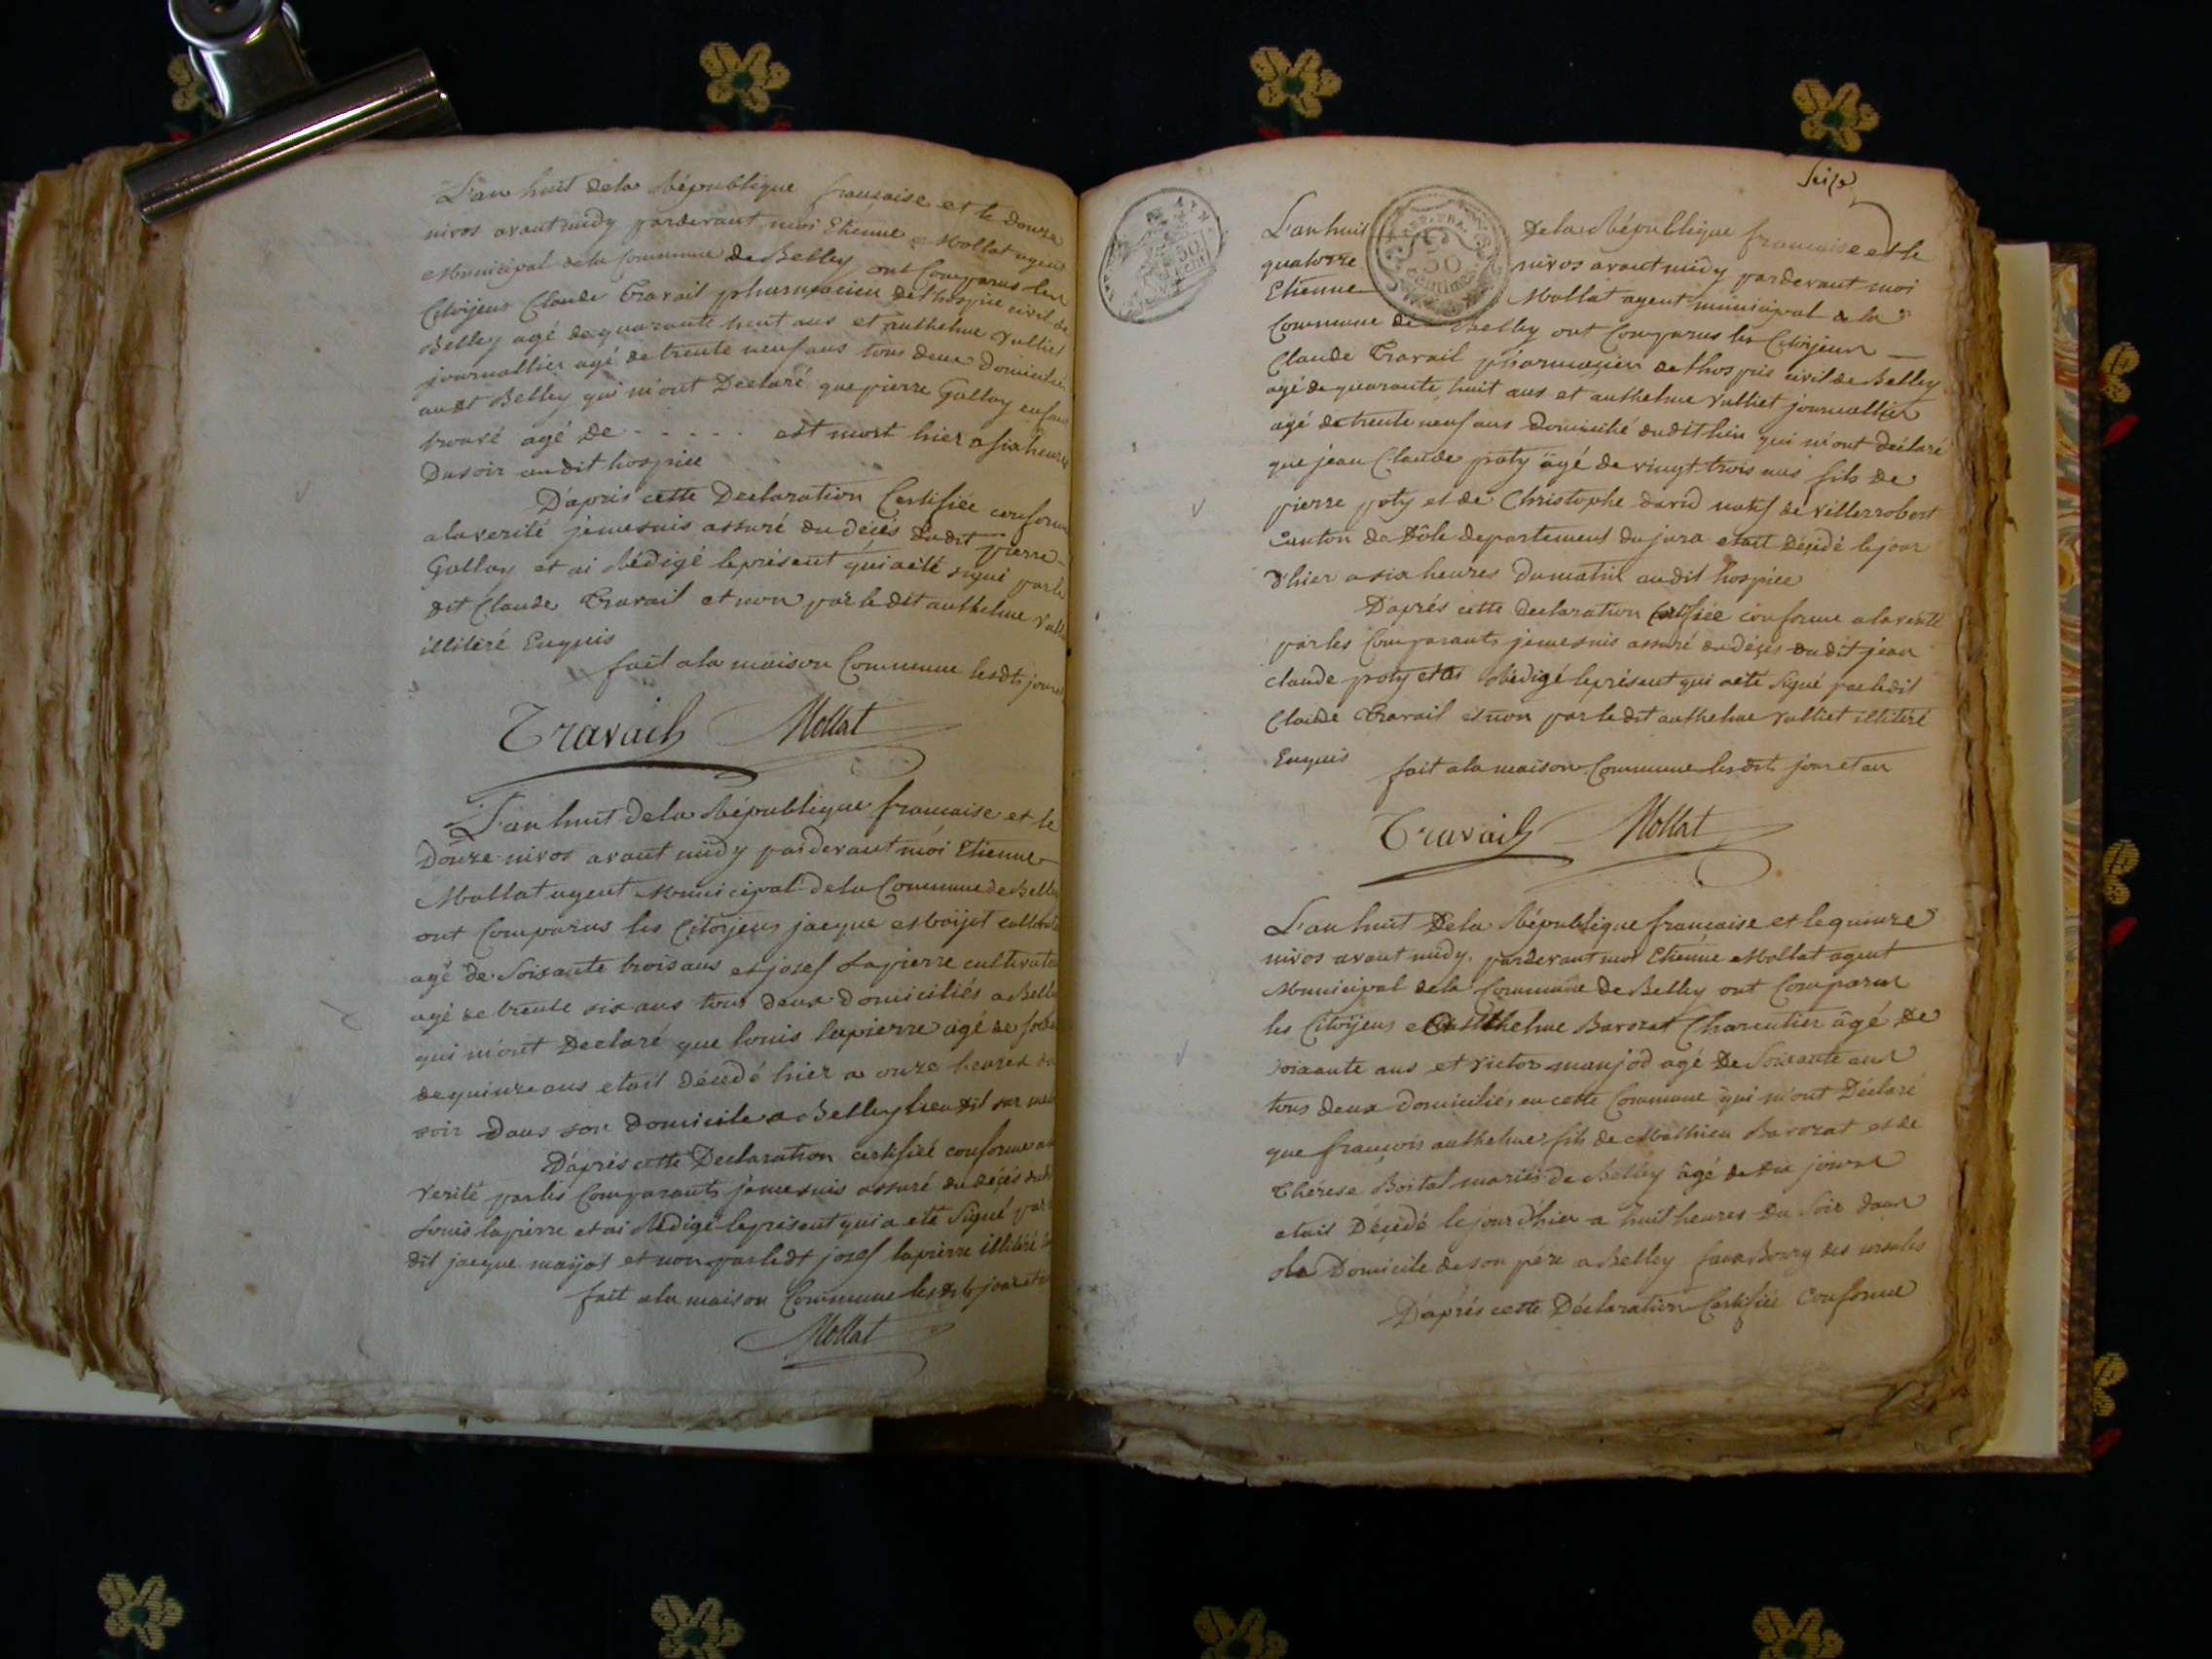 L'an huit de la République française et le douze
nivos avant midy pardevant moi Etienne Mollat agen
Municipal de la Commune de Belley ont Comparus les
Citoÿens Claude Travail pharmacien de lhospice civil de
Belley agé de quarante huit ans et anthelme Vulliet
journallier agé de trente neuf ans tous deux domiciliés
audt Belley qui m'ont Declaré que pierre Gallay enfant
trouvé agé de - - - - - est mort hier a six heures
Du soir audit hospice
D'aprés cette Declaration Certifiée conforme
a la verité je me suis assuré du décés dudit pierre
Gallay et ai Rédigé le présent qui a eté signé par le
dit Claude Travail et non par le dit anthelme Vull
illitéré Enquis
fait a la maison Commune lesdts jour
Travail Mollat
L'an huit de la République francaise et le
Douze nivos avant midy pardevant moi Etienne
Mollat agent Municipal de la Commune de Belle
ont Comparus les Citoÿens jacque Maijot
agé de Soixante trois ans et josef Lapierre cultivate
agé de trente six ans tous deux domiciliés a Belle
qui m'ont Declaré que louis lapierre agé de
de quinze ans etait décédé hier a onze heures du
soir dans son domicile a Belley lieu dit sur
D'aprés cette Declaration certifiée conforme a
verité par les Comparants je me suis assuré du décés dud
Louis lapierre et ai Rédigé le présent qui a eté Signé par
dit jacque maijot et non par ledt josef lapierre illitéré
fait a la maison Commune lesdts jour et
Mollat
Seize
L'an huit De la République francaise et le
quatorze nivos avant midy pardevant moi
Etienne Mollat agent municipal de la
Commune de Belley ont Comparus les Citoÿens
Claude Travail pharmacien de lhospice civil de Belley
agé de quarante huit ans et anthelme Vulliet journallier
agé de trente neuf ans domicilié audit lieu qui m'ont déclaré
que jean Claude poty âgé de vingt trois ans fils de
pierre poty et de Christophe david natif de villerrobert
Canton de Dôle departement du jura etait décédé le jour
d'hier a six heures du matin audit hospice
D'aprés cette declaration Certifiée conforme a la vérité
par les Comparants je me suis assuré du décés dudit jean
claude poty et ai Rédigé le présent qui a eté Signé par ledit
Claude Travail et non par le dit anthelme Vulliet illitéré
Enquis fait a la maison Commune lesdts jour et an
Travail Mollat
L'an huit De la République francaise et le quinze
nivos avant midy pardevant moi Etienne Mollat agent
Municipal de la Commune de Belley ont Comparus
les Citoÿens Anthelme Barozat Charcutier âgé De
soixante ans et victor manjod agé De Soixante ans
tous deux domiciliés en cette Commune qui m'ont Déclaré
que françois anthelme fils de Mathieu Barozat et de
Thérese Boital mariés de Belley âgé de dix jours
etait Décédé le jour d'hier a huit heures Du Soir dans
le Domicile de son pére a Belley fauxbourg des ursules
D'aprés cette Déclaration Certifiée Conforme